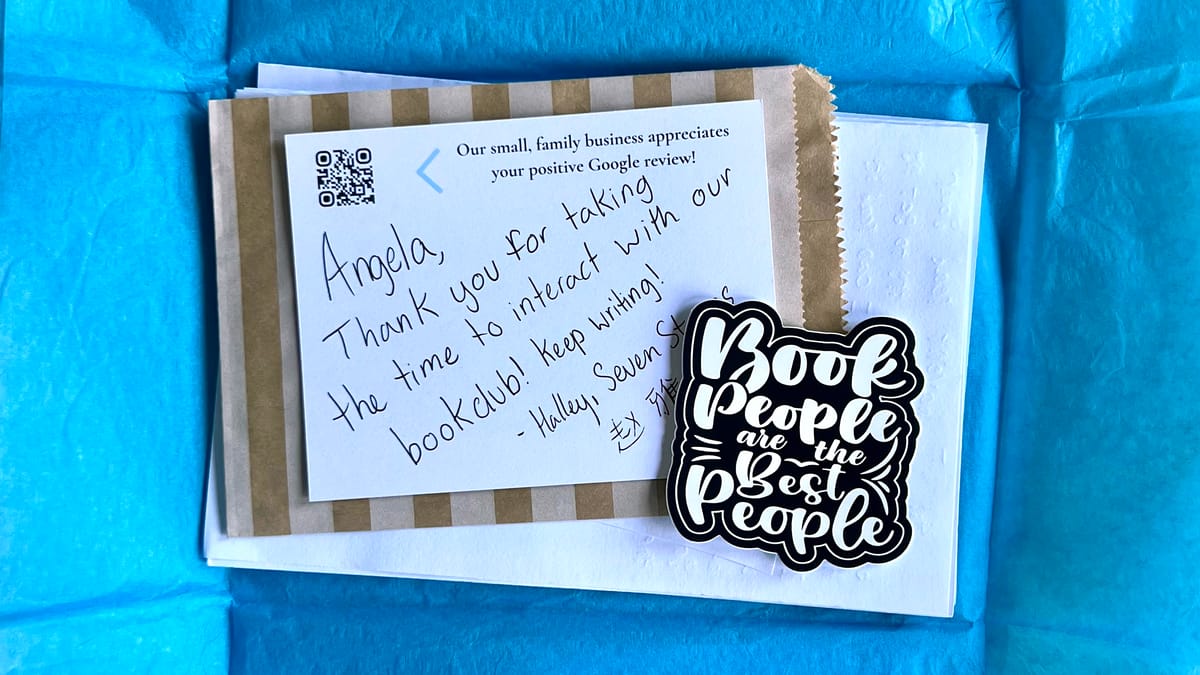 Our small, family business appreciates
your positive Google review!
Angela,
Thank you for taking
the time to interact with our
bookclub! Keep writing!
- Halley, Seven
赵 雅
Book
People
are the
Best
People